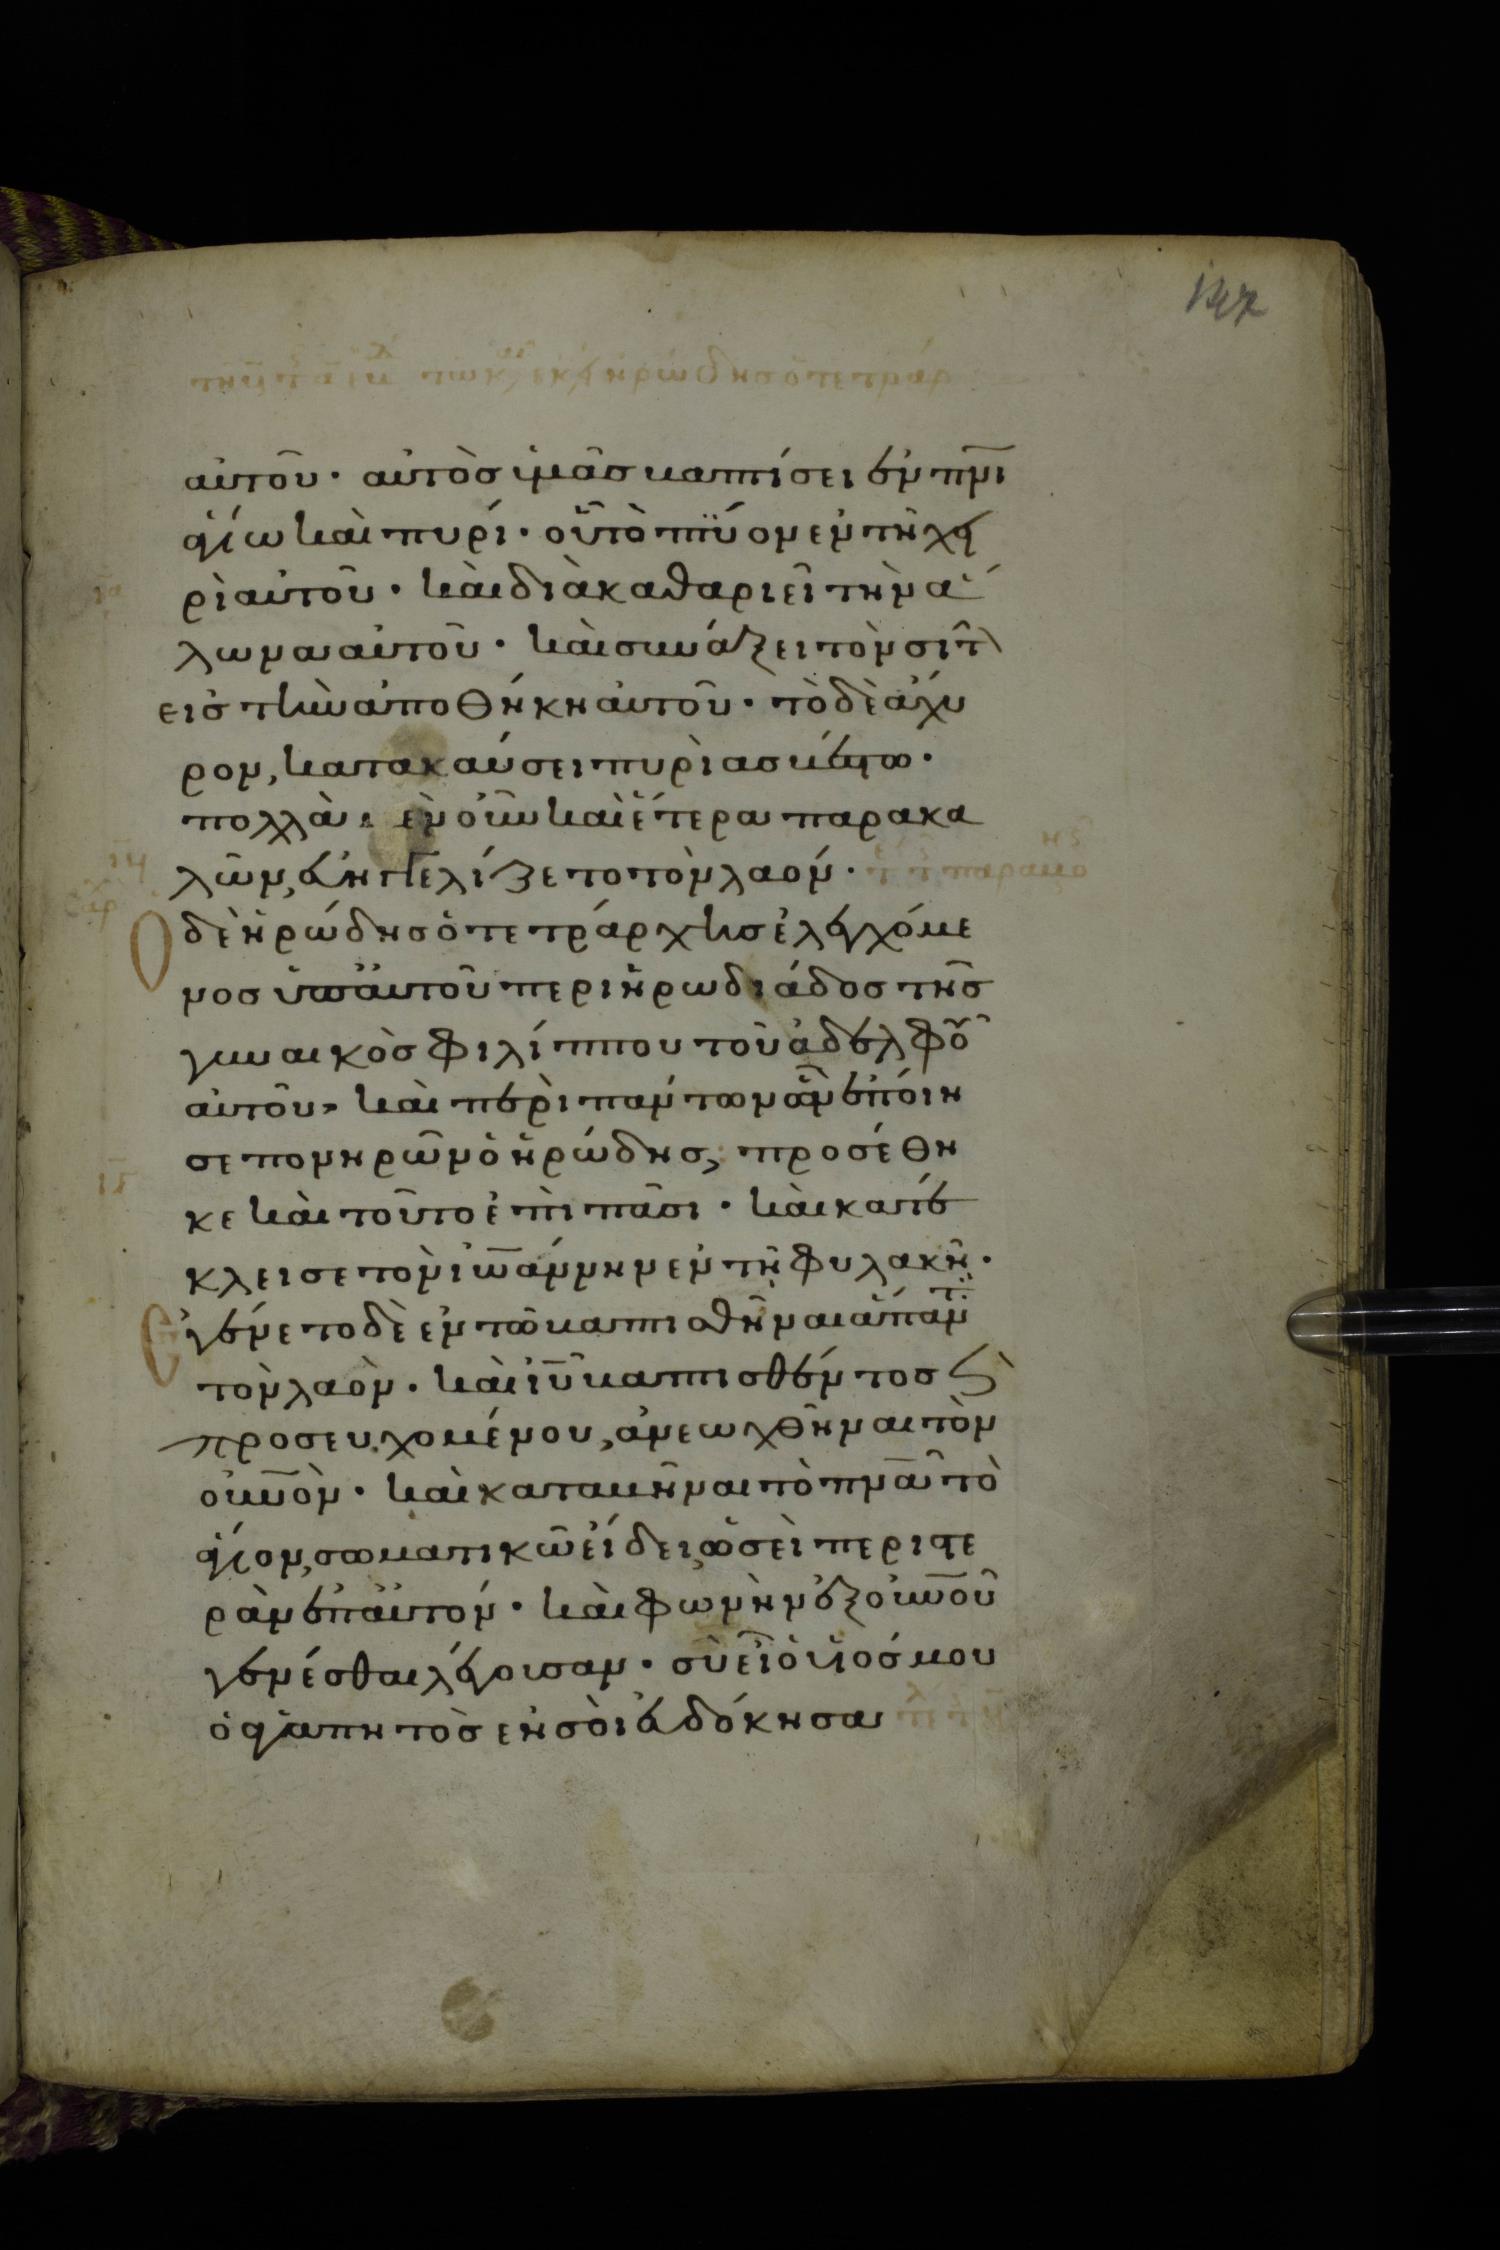 147
αὐτοῦ· αὐτὸσ ὑμᾶσ βαπτίσει ἐν πνι
ἁγίω καὶ πυρί· οὗ τὸ πτύον ἐν τῆ χει
ρὶ αὐτοῦ· καὶ διὰκαθαριεῖ τὴν ἅ
λωνα αὐτοῦ· καὶ συνάξει τὸν σῖτ
εισ τὴν ἀποθήκη αὐτοῦ· τὸ δὲ ἄχυ
ρον, κατακαύσει πυρὶ ασβέστω·
πολλὰ μὲν οὖν καὶ ἕτερα παρακα
λῶν, εὐηγγελίζετο τὸν λαόν·
Ὁ δὲ ἡρώδησ ὁ τετράρχησ ἐλεγχόμε
νοσ ὑπ' αὐτοῦ περι ἡρωδιάδοσ τῆσ
γυναικὸσ φιλίππου τοῦ ἀδελφοῦ
αὐτοῦ, καὶ περὶ πάντων ὧν ἐποίη
σε πονηρῶν ὁ ἡρώδησ, προσέθη
κε καὶ τοῦτο ἐπὶ πᾶσι· καὶ κατέ
κλεισε τὸν ἰωάννην ἐν τῆ φυλακῆ·
Ἐγένετο δὲ ἐν τῶ βαπτισθῆναι ἅπαντ
τὸν λαὸν· καὶ ιυ βαπτισθέντοσ ϗ
προσευχομένου, ἀνεωχθῆναι τὸν
οὐνὸν· καὶ καταβῆναι τὸ πνα τὸ
ἅγιον, σωματικῶ εἴδει ὡσεὶ περιστε
ρὰν ἐπ' αὐτόν· καὶ φωνὴν ἐξ οὐνοῦ
γενέσθαι λέγουσαν· σὺ εἶ ὁ υἱόσ μου
ὁ ἀγαπητὸσ ἐν σοὶ εὐδόκησα